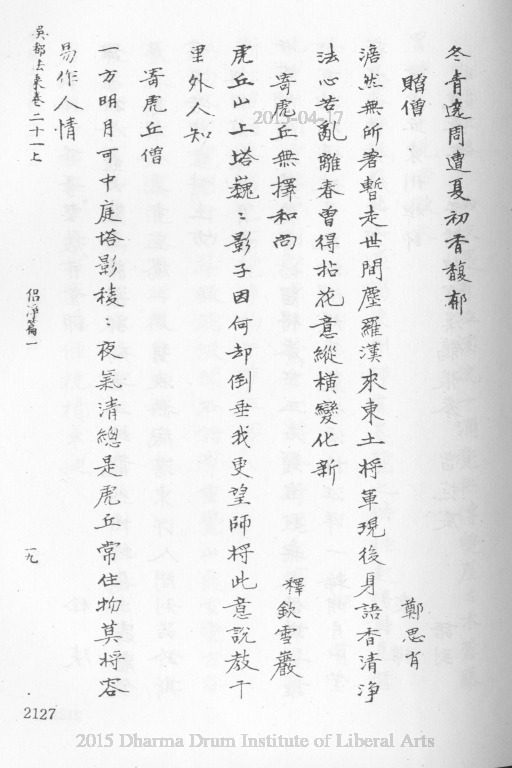 冬青遶周遭夏初香馥郁
贈僧
鄭思肖
澹然無所著暫走世間塵羅漢來東土將軍現後身語香清淨
法心苦亂離春曽得拈花意縱橫變化新
寄虎丘無擇和尚
釋欽雪巖
虎丘山上塔巍〻影子因何却倒垂我更望師將此意說教千
里外人知
寄虎丘僧
一方明月可中庭塔影稜〻夜氣清總是虎丘常住物莫將容
易作人情
吳都法乘卷二十一上
侶淨篇一
一九
2127
2015-04-17
2015 Dharma Drum Institute of Liberal Arts